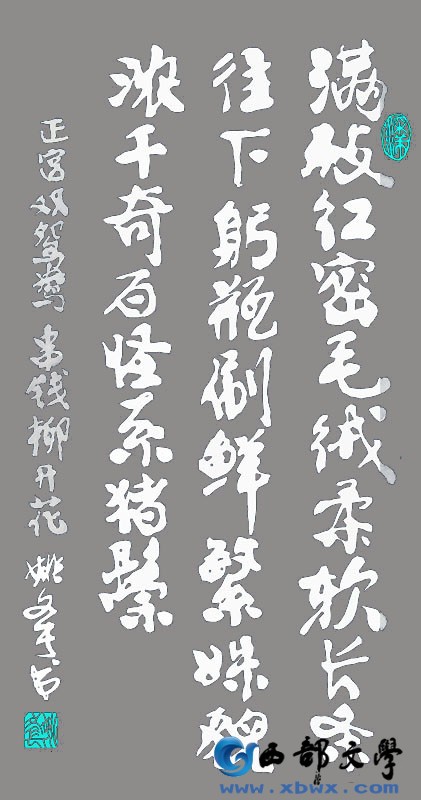 满枝红密毛绒柔软长条
往下躬瓶刷鲜繁姝靓
浓千奇百怪系猪鬃
正宫双鸳鸯 串钱柳开花 姚书
西部文学
www.xbwx.com